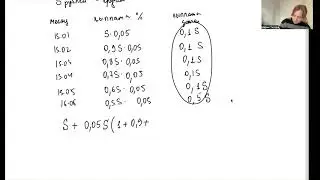 S рублей - кредит
месяц выплата % выплата долга
15.01 S·0,05 0,1S
15.02 0,9S·0,05 0,1S
15.03 0,8S·0,05 0,1S
15.04 0,7S·0,05 0,1S
15.05 0,6S·0,05 0,1S
16.06 0,5S·0,05 0,5S
S + 0,05S(1+0,9+